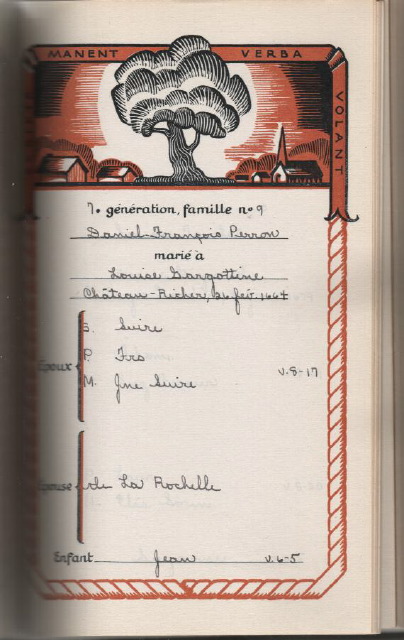 MANENT VERBA VOLANT
7. génération, famille nº 9
Daniel-François Perron
marié à
Louise Gargottine
Château-Richer, 26 fév. 1664
S. Suire
P. Frs
Époux M. Jne Suire v.8-17
Épouse de La Rochelle
Enfant Jean v.6-5